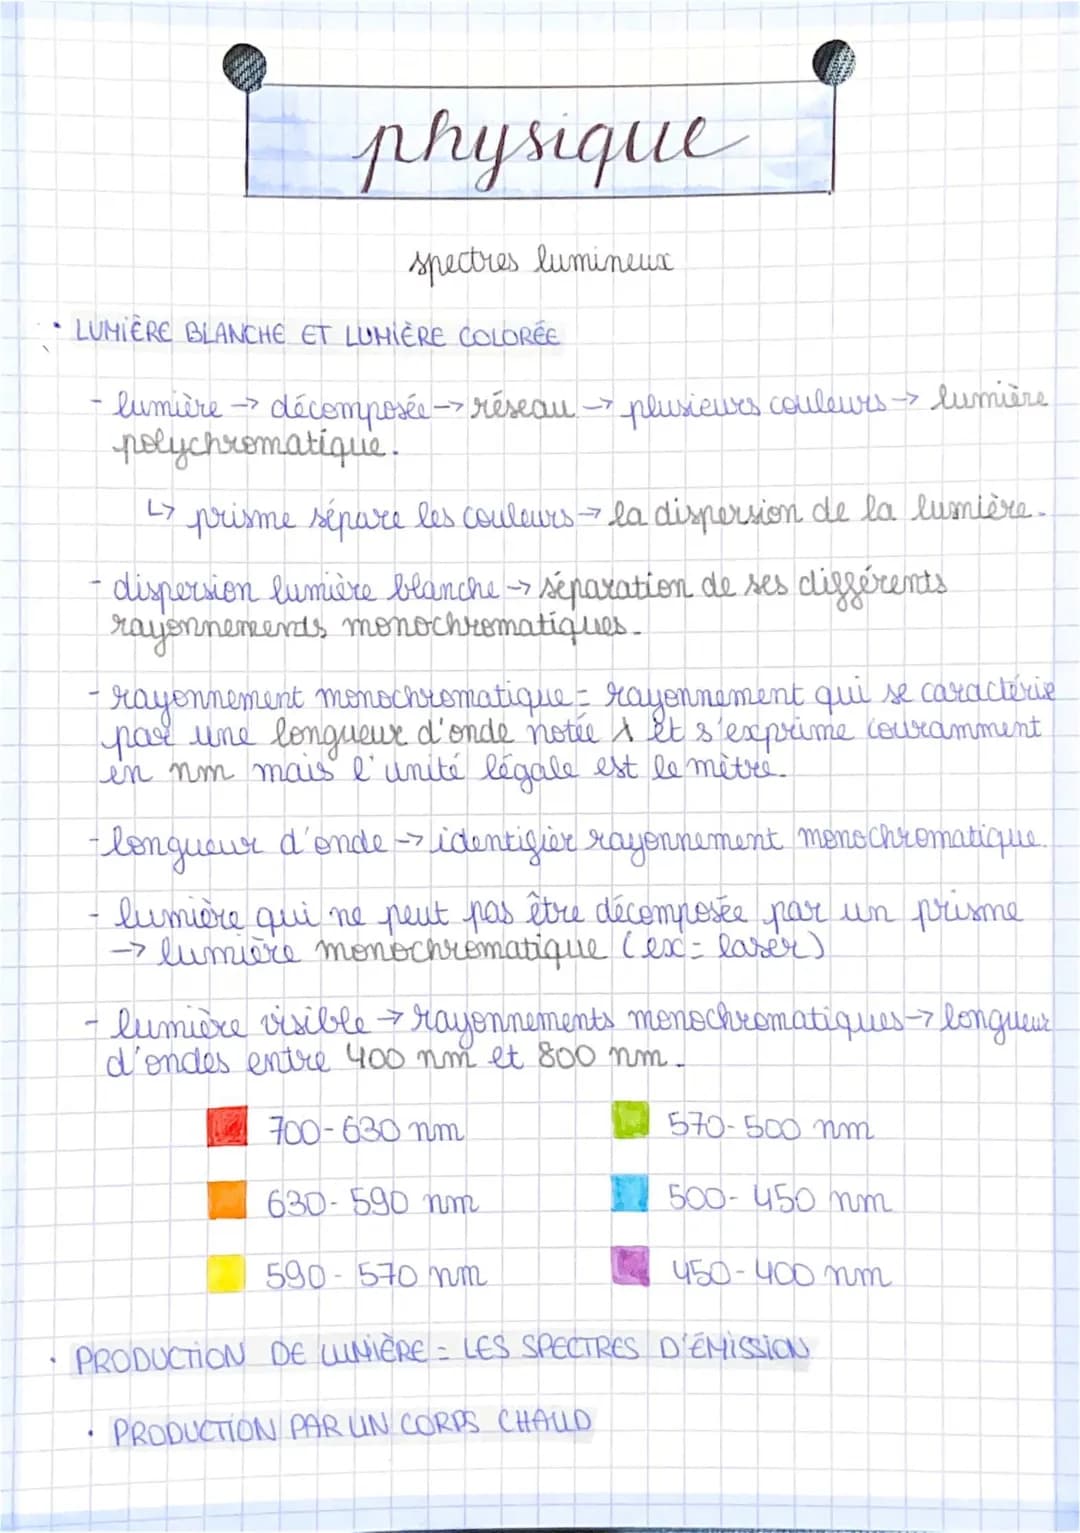 physique
spectres lumineux
• LUMIÈRE BLANCHE ET LUMIÈRE COLORÉE
- lumière → décomposée → réseau → plusieurs couleurs → lumière
polychromatique.
↳ prisme sépare les couleurs → la dispersion de la lumière.
- dispersion lumière blanche → séparation de ses différents
rayonnements monochromatiques.
- rayonnement monochromatique = rayonnement qui se caractérie
par une longueur d'onde notée λ et s'exprime couramment
en nm mais l'unité légale est le mètre.
- longueur d'onde → identifier rayonnement monochromatique.
- lumière qui ne peut pas être décomposée par un prisme
→ lumière monochromatique (ex = laser)
- lumière visible → rayonnements monochromatiques → longueur
d'ondes entre 400 nm et 800 nm.
700-630 nm 570-500 nm
630-590 nm 500-450 nm
590-570 nm 450-400 nm
• PRODUCTION DE LUMIÈRE = LES SPECTRES D'ÉMISSION
• PRODUCTION PAR UN CORPS CHAUD